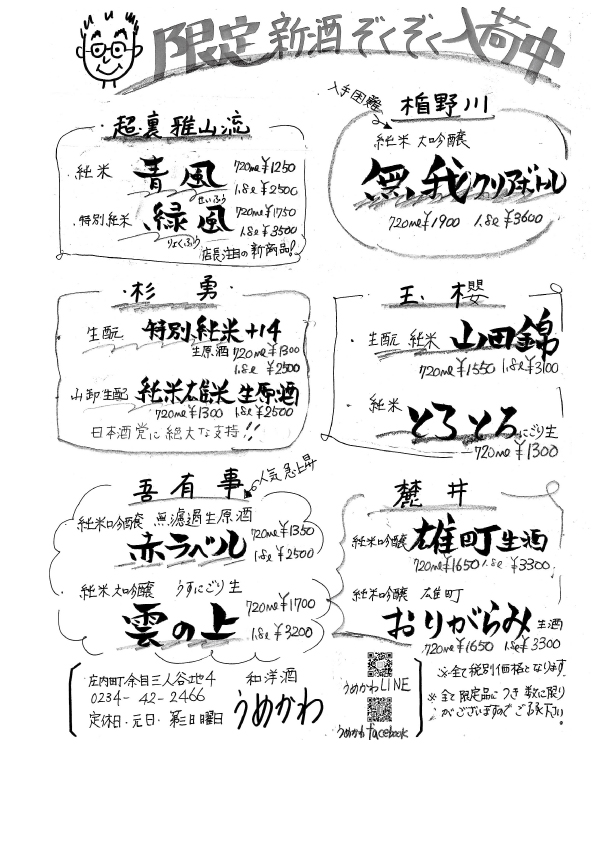 限定新酒ぞくぞく入荷中
超裏雅山流
純米 青風 720ml ¥1250
せいふう 1.8l ¥2500
特別純米 緑風 720ml ¥1750
りょくふう 1.8l ¥3500
店長注目の新商品!!
入手困難
楯野川
純米大吟醸
無我クリアボトル
720ml ¥1900 1.8l ¥3600
杉勇
生酛 特別純米+14
生原酒 720ml ¥1300
1.8l ¥2500
山卸生酛 純米雄米生原酒
720ml ¥1300 1.8l ¥2500
日本酒党に絶大な支持!!
王櫻
生酛 純米 山田錦
720ml ¥1550 1.8l ¥3100
純米 とろとろ にごり生
720ml ¥1300
吾有事
人気急上昇
純米吟醸 無濾過生原酒
赤ラベル 720ml ¥1350
1.8l ¥2500
純米大吟醸 うすにごり生
雲の上 720ml ¥1700
1.8l ¥3200
麓井
純米吟醸 雄町生酒
720ml ¥1650 1.8l ¥3300
純米吟醸 雄町
おりがらみ 生酒
720ml ¥1650 1.8l ¥3300
庄内町余目三人谷地4
0234-42-2466
定休日・元日・第三日曜日
和洋酒
うめかわ
うめかわLINE
うめかわfacebook
※全て税別価格となります
※全て限定品につき数に限り
がございますのでご了承下さい。